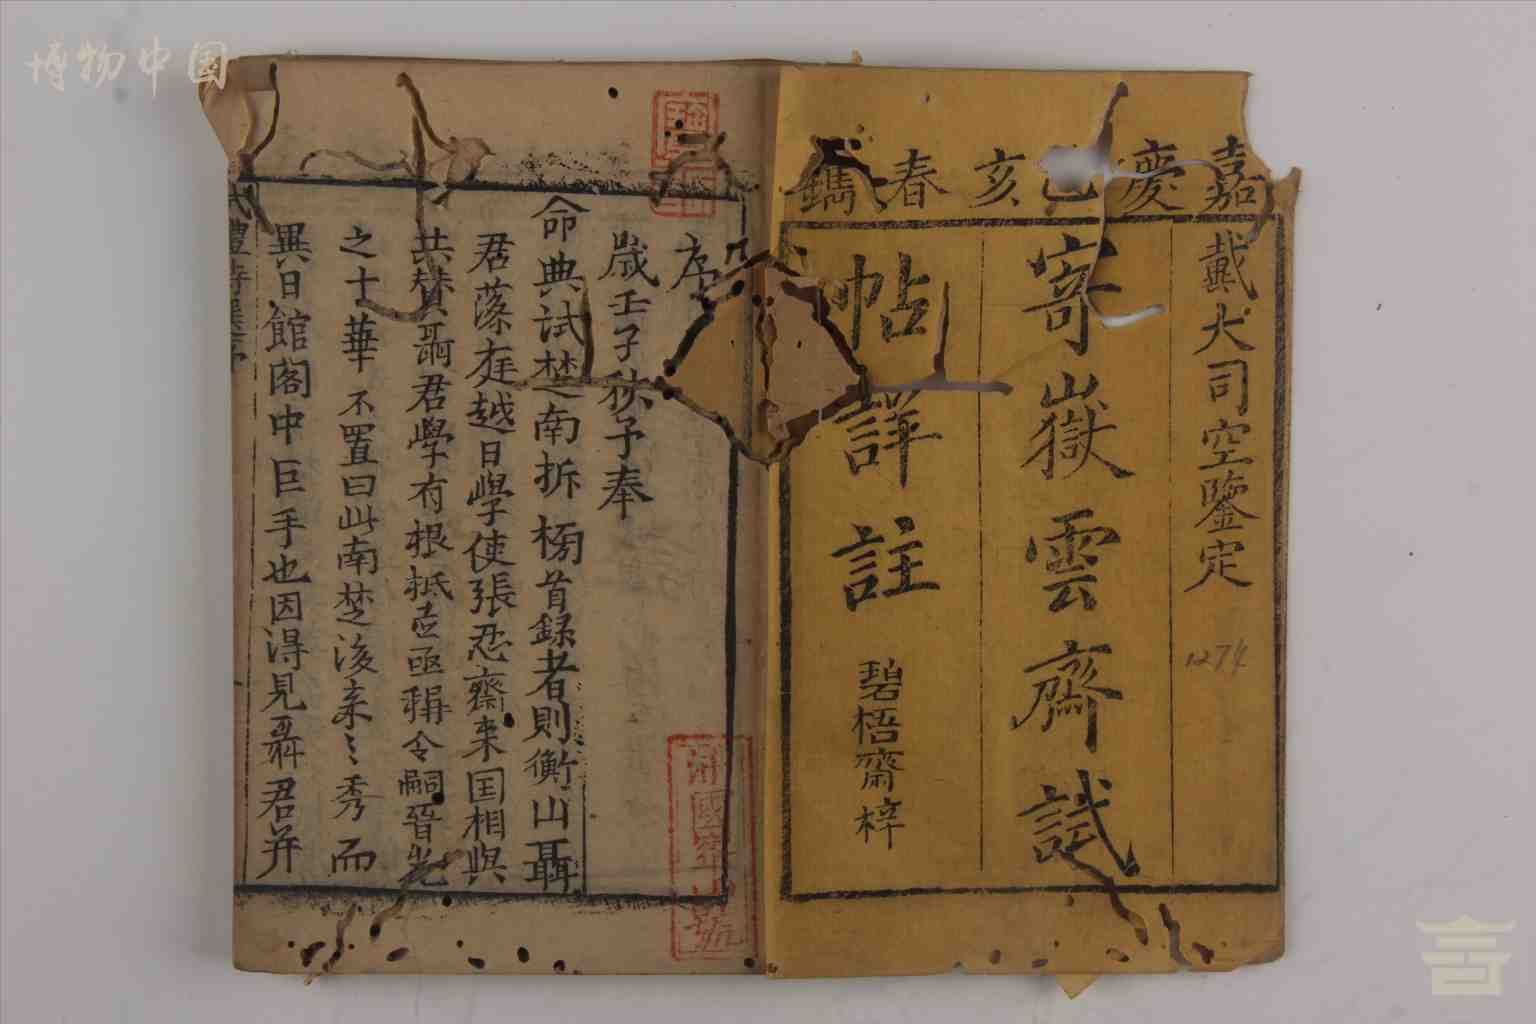 博物中国
嘉慶己亥春鐫
戴大司空鑒定
寄嶽雲齋試
帖詳註
碧梧齋梓
1274
序
歲壬子秋予奉
命典試楚南拆榜首録者則衡山聶
君落庭越日學使張忍齋来囯相與
共賛聶君學有根柢亟稱令嗣晉光
之才華不置曰此南楚後來之秀而
異日館閣中巨手也因得見聶君并